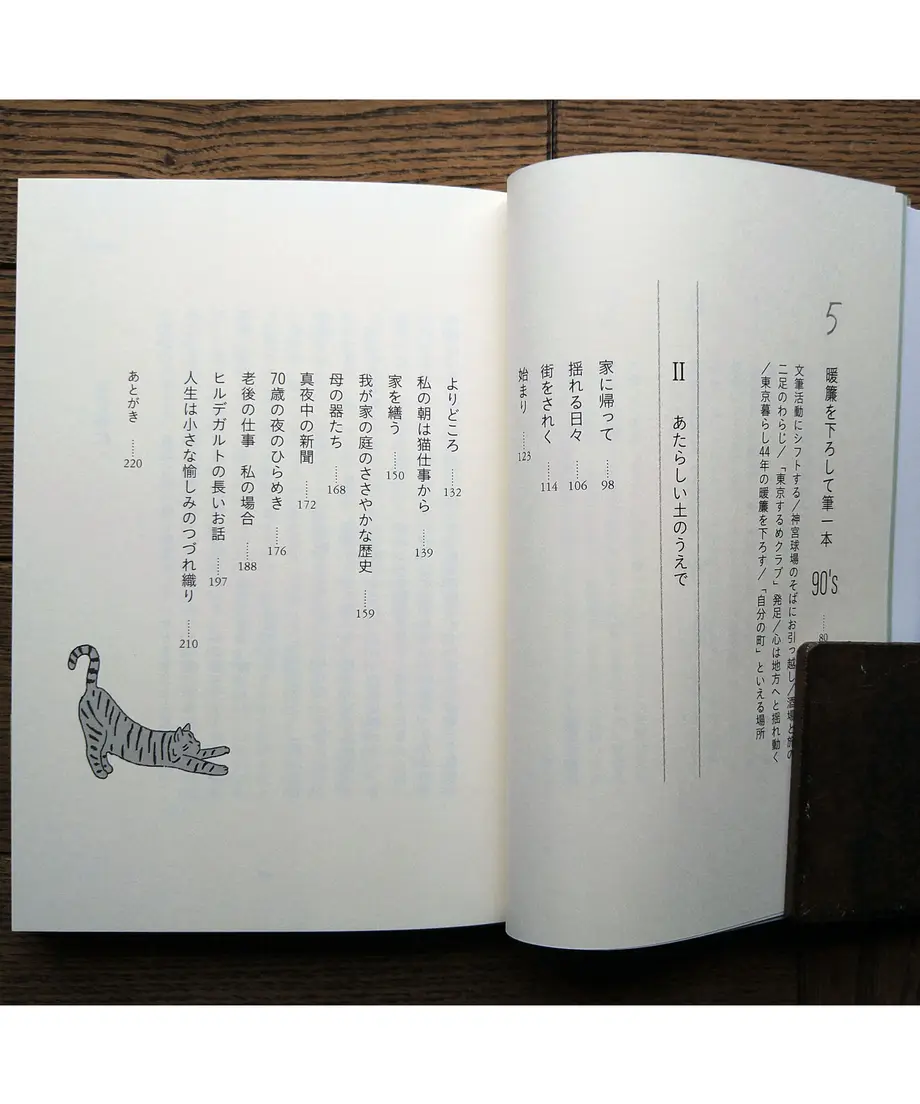 5
暖簾を下ろして筆一本 90's ……89
文筆活動にシフトする/神宮球場のそばにお引っ越し/酒場と旅の
二足のわらじ/「東京するめクラブ」発足/心は地方へと揺れ動く
/東京暮らし44年の暖簾を下ろす/「自分の町」といえる場所
II あたらしい土のうえで
家に帰って ……98
揺れる日々 ……106
街をされく ……114
始まり ……123
よりどころ ……132
私の朝は猫仕事から ……139
家を繕う ……150
我が家の庭のささやかな歴史 ……159
母の器たち ……168
真夜中の新聞 ……172
70歳の夜のひらめき ……176
老後の仕事 私の場合 ……188
ヒルデガルトの長いお話 ……197
人生は小さな愉しみのつづれ織り ……210
あとがき ……220